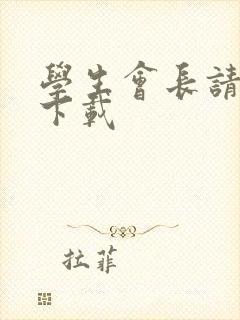 學生會長請
下載
拉菲